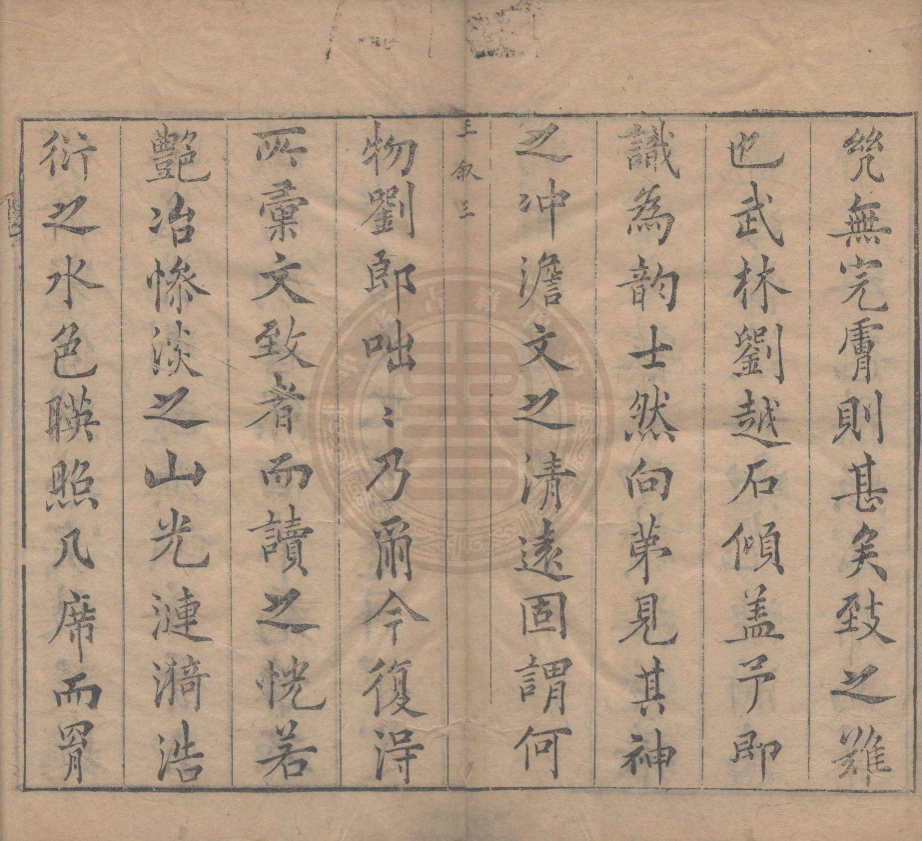 㡬無完膚則甚矣致之難
也武林劉越石傾盖予即
識為韵士然向第見其神
之冲澹文之清遠固謂何
王叙三
物劉郎咄〻乃爾今復淂
所彙文致者而讀之恍若
艷冶慘淡之山光漣漪浩
衍之水色暎照几席而罥